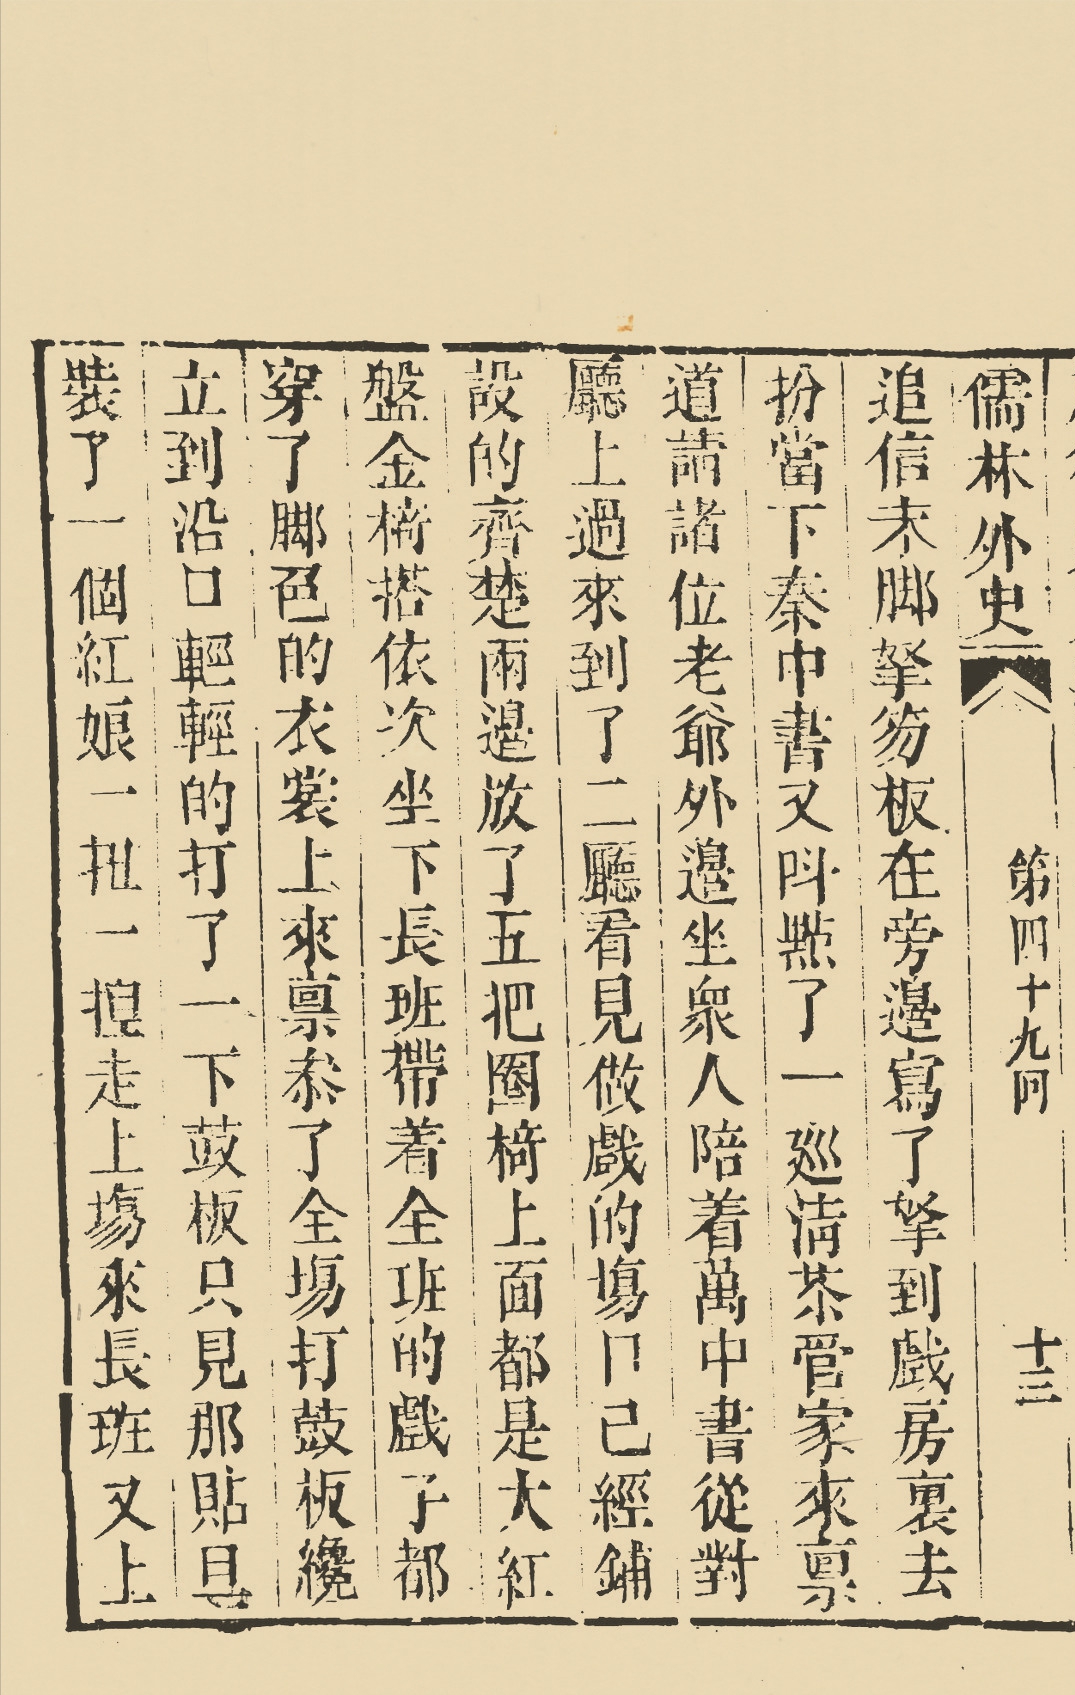 儒林外史
第四十九回
十三
追信末脚拏笏板在旁邊寫了拏到戲房裏去
扮當下秦中書又呌點了一廵清茶管家來禀
道請諸位老爺外邊坐衆人陪着萬中書從對
廳上過來到了二廳看見做戲的塲口已經鋪
設的齊楚兩邊放了五把圈椅上面都是大紅
盤金椅搭依次坐下長班帶着全班的戲子都
穿了脚色的衣裳上來禀叅了全塲打鼓板纔
立到沿口輕輕的打了一下鼓板只見那貼旦
裝了一個紅娘一扭一揑走上塲來長班又上